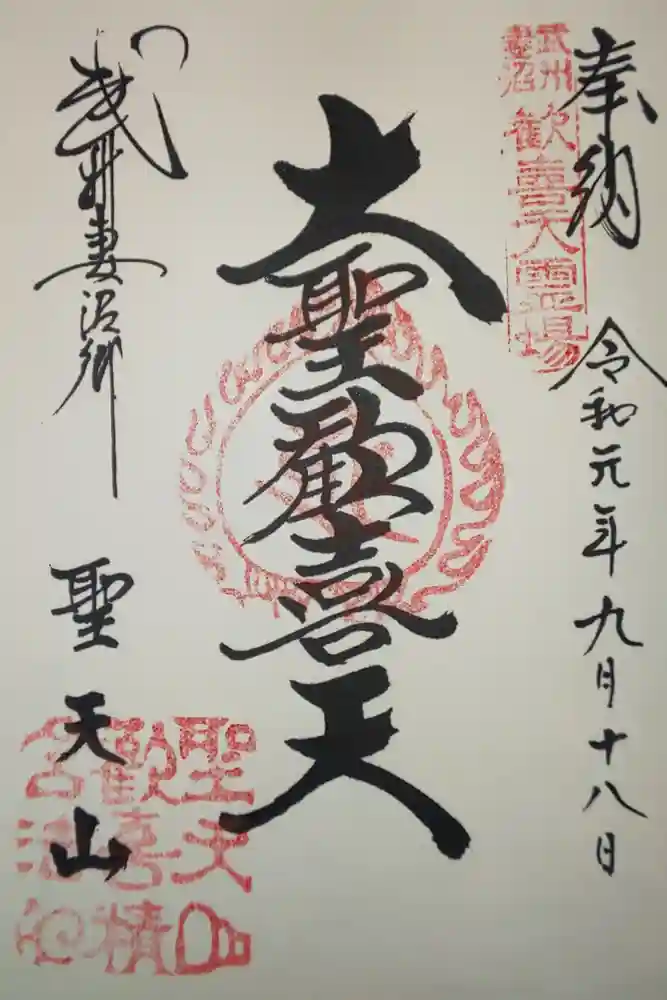 奉納
令和元年九月十八日
武州
妻沼
歓喜天霊場
大聖歓喜天
武州妻沼郷
聖天山
聖天山
歓喜精